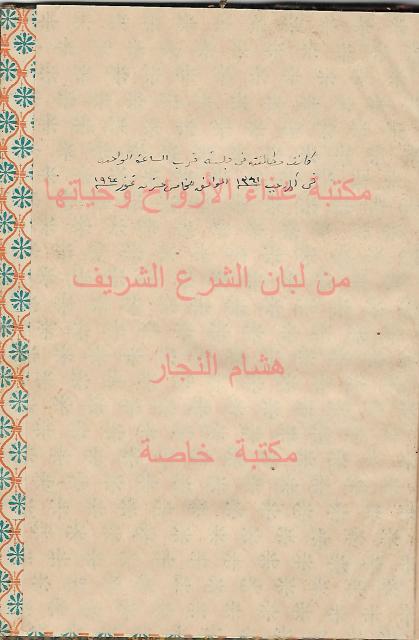 كانت مطالعته في جلسة قرب الساعة الواحدة
في أول رجب ١٣٦١ الموافق الخامس عشر من تموز ١٩٤٢
مكتبة غذاء الأرواح وحياتها
من لبان الشرع الشريف
هشام النجار
مكتبة خاصة